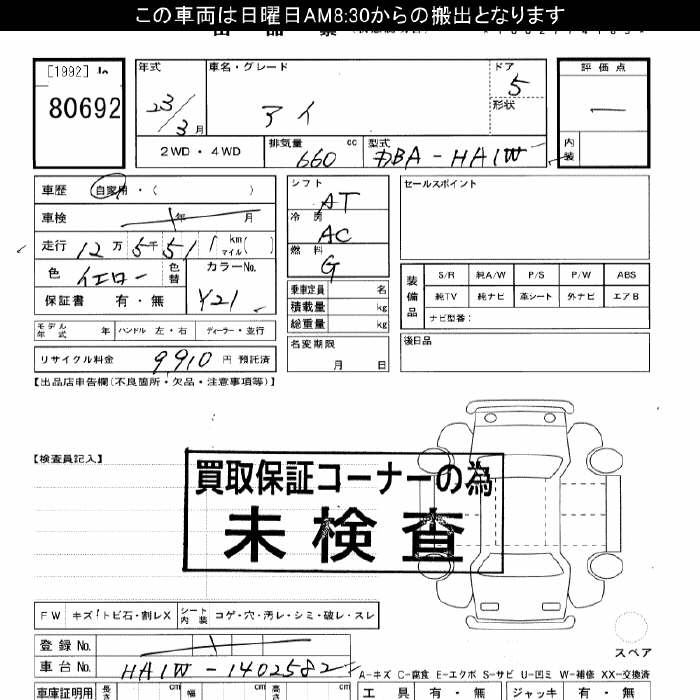 この車両は日曜日AM8:30からの搬出となります
[1992]
80692
年式
23/3月
車名・グレード
アイ
ドア
5
形状
評価点
内装
2WD・4WD
排気量
660 cc
型式
DBA-HA1W
車歴 自家用・( )
車検 年 月
走行 12万5千51 km マイル( )
色 イエロー 色替
カラーNo.
Y21
保証書 有・無
モデル年式 年 ハンドル 左・右 ディーラー・並行
リサイクル料金 9910円 預託済
シフト
AT
冷房
AC
燃料
G
乗車定員 名
積載量 kg
総重量 kg
名変期限
月 日
セールスポイント
装備品
S/R 純A/W P/S P/W ABS
純TV 純ナビ 革シート 外ナビ エアB
ナビ型番:
後日品
【出品店申告欄(不良箇所・欠品・注意事項等)】
【検査員記入】
買取保証コーナーの為
未検査
FW キズ/トビ石・割レX シート内装 コゲ・穴・汚レ・シミ・破レ・スレ
スペア
登録No.
車台No. HA1W-1402582
A-キズ C-腐食 E-エクボ S-サビ U-凹ミ W-補修 XX-交換済
車庫証明用 長さ cm 幅 cm 高さ cm
工具 有・無 ジャッキ 有・無